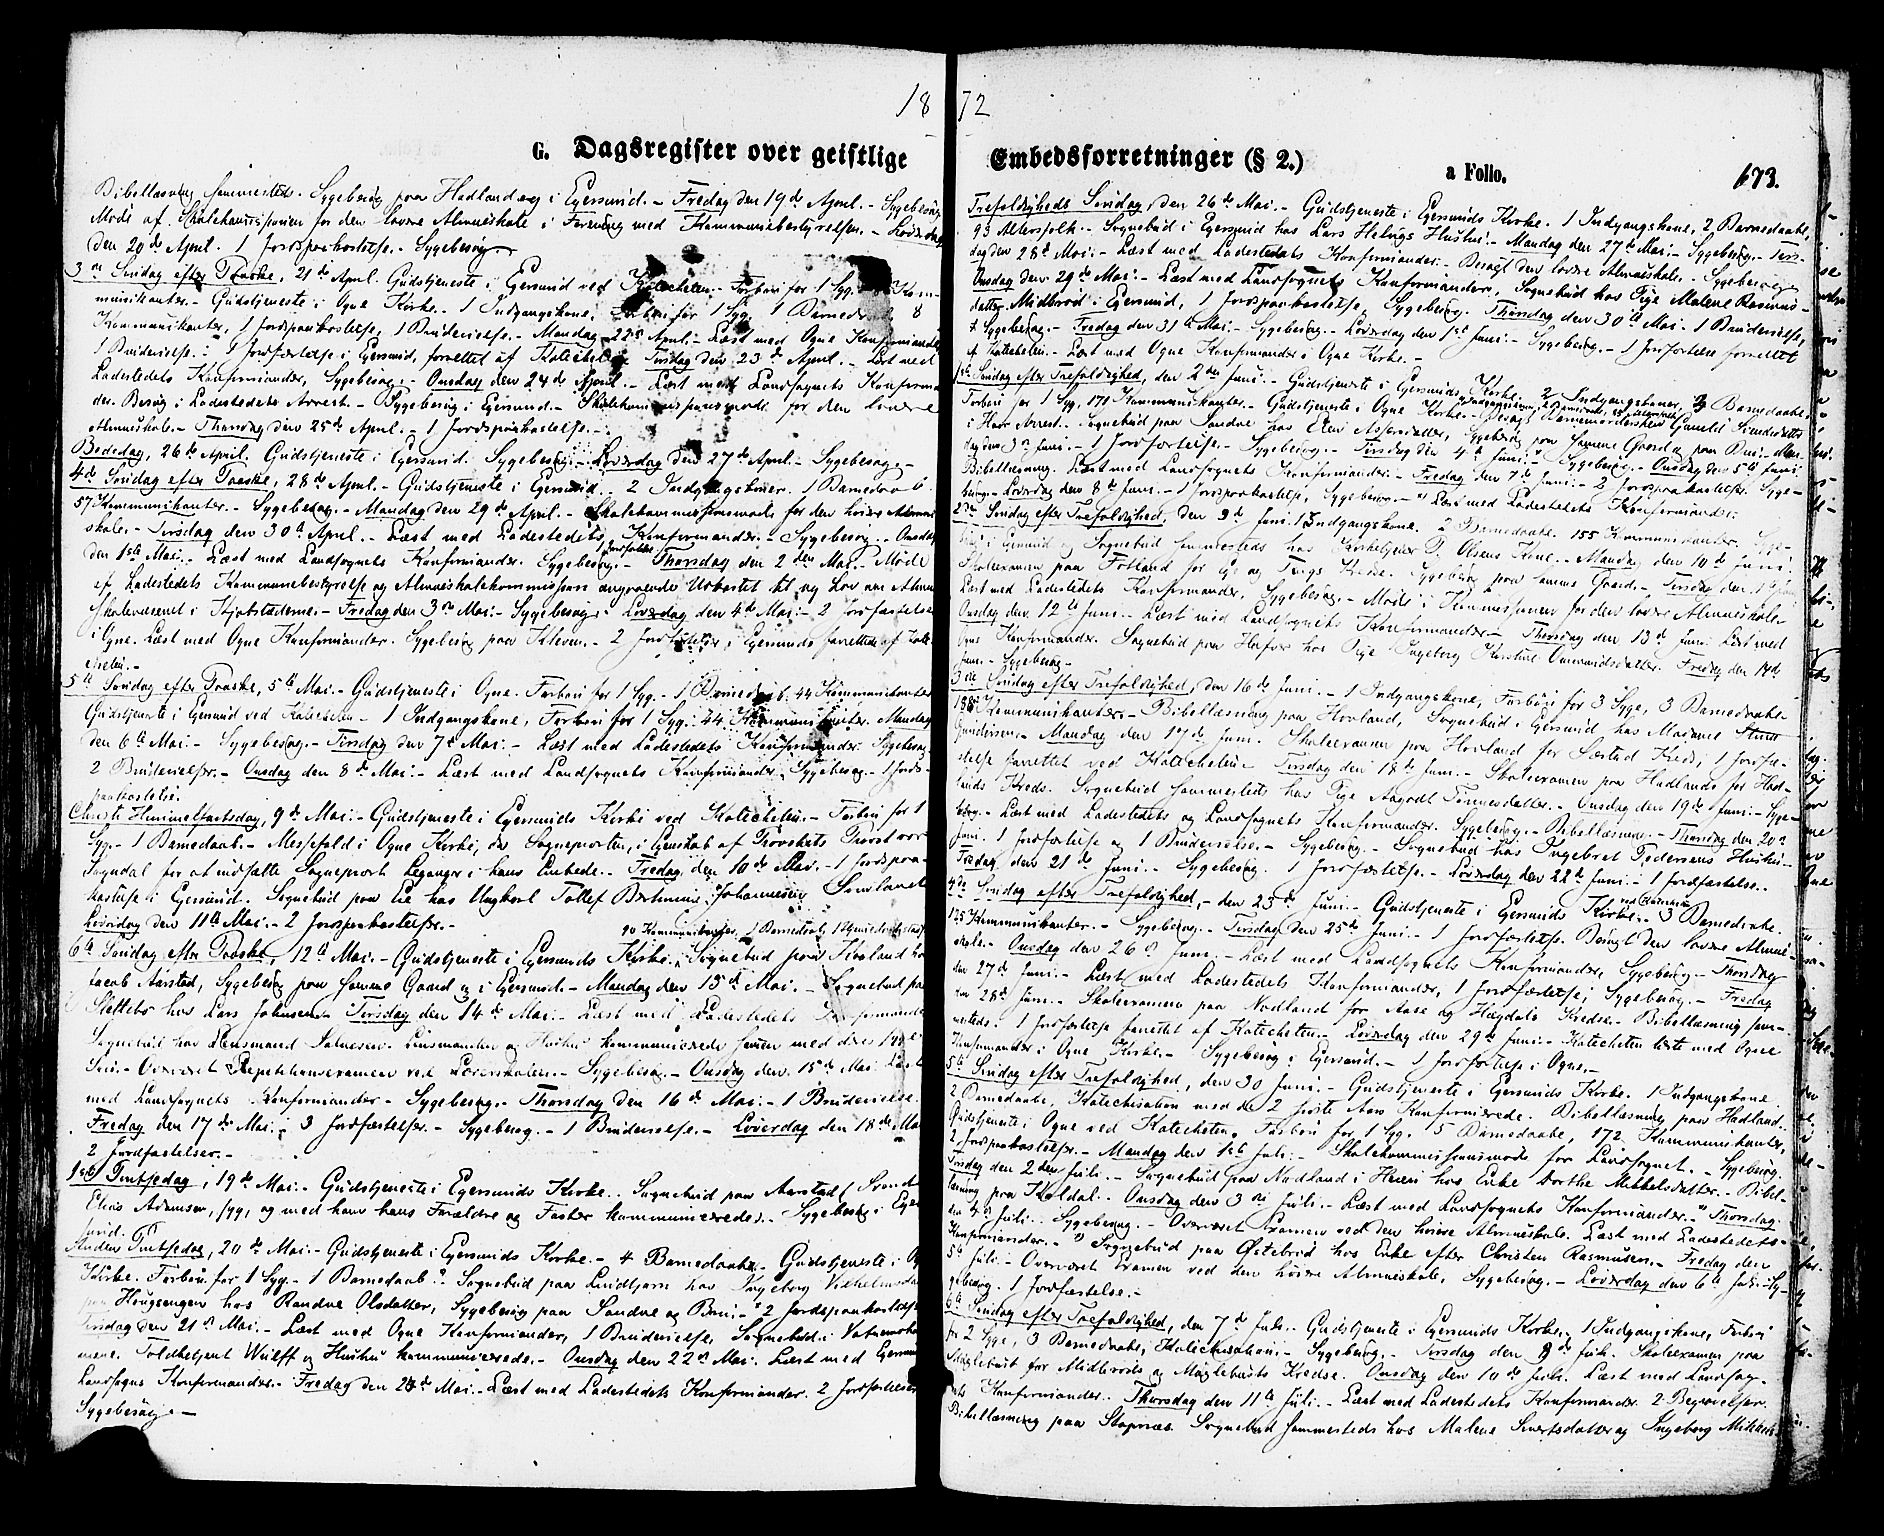 18
G. Dagsregister over geistlige
Bibellæsning sammesteds. Sygebesøg paa Hadland og i Egersund. - Fredag den 19de April. - Sygebesøg
Møde af Skolekommissionen for den lavere Almueskole i Forening med Kommunebestyrelsen. - Løverdag
den 20de April. 1 Jordpaakastelse. - Sygebesøg. -
3die Søndag efter Paaske, 21de April. Gudstjeneste i Egersund ved Katecheten. - Forbøn for 1 Syg.
munikanter. - Gudstjeneste i Ogne Kirke. - 1 Indgangskone, Forbøn for 1 Syg. 1 Barnedaab 8
Kommunikanter, 1 Jordpaakastelse, 1 Brudevielse. - Mandag 22de April. - Læst med Ogne Konfirmander
1 Brudevielse. - 1 Jordfæstelse i Egersund, forrettet af Katecheten. Tirsdag den 23de April. - Læst med
Ladestedets Konfirmander, Sygebesøg. - Onsdag den 24de April. - Læst med Landsognets Konfirman-
der. Besøg i Ladestedets Arrest. - Sygebesøg i Egersund. - Skolekommissionsmøde for den lavere
Almueskole. - Thorsdag den 25de April. - 1 Jordpaakastelse. -
Bededag, 26de April. Gudstjeneste i Egersund. Sygebesøg. - Løverdag den 27de April. - Sygebesøg. -
4de Søndag efter Paaske, 28de April. - Gudstjeneste i Egersund. 2 Indgangskoner. 1 Barnedaab.
57 Kommunikanter. - Sygebesøg. - Mandag den 29de April. - Skolekommissionsmøde for den høiere Almue-
skole. - Tirsdag den 30te April. - Læst med Ladestedets Konfirmander. - Sygebesøg. - Onsdag
den 1ste Mai. - Læst med Landsognets Konfirmander. Sygebesøg. - Thorsdag den 2den Mai. - Møde
af Ladestedets Kommunebestyrelse og Almueskolekommission angaaende Udkastet til ny Lov om Almue-
skolevæsenet i Kjøbstæderne. - Fredag den 3die Mai. - Sygebesøg. - Løverdag den 4de Mai. - 2 Jordfæstelser
i Ogne. Læst med Ogne Konfirmander. Sygebesøg paa Kleven. - 2 Jordfæstelser i Egersund forrettet af Kate-
cheten. -
5te Søndag efter Paaske, 5te Mai. - Gudstjeneste i Ogne. Forbøn for 1 Syg. - 1 Barnedaab. 44 Kommunikanter
Gudstjeneste i Egersund ved Katecheten. - 1 Indgangskone, Forbøn for 1 Syg. 44 Kommunikanter. Mandag
den 6te Mai. - Sygebesøg. - Tirsdag den 7de Mai. - Læst med Ladestedets Konfirmander. Sygebesøg.
2 Brudevielser. - Onsdag den 8de Mai. - Læst med Landsognets Konfirmander, Sygebesøg. - 1 Jord-
paakastelse.
Christi Himmelfartsdag, 9de Mai. - Gudstjeneste i Egersunds Kirke ved Katecheten. - Forbøn for 1
Syg. - 1 Barnedaab. - Messefald i Ogne Kirke, da Sognepresten, i Egenskab af Provstiets Provst var
Sogndal for at indsætte Sogneprest Leganger i hans Embede. - Fredag den 10de Mai. - 1 Jordpaa-
kastelse i Egersund. Sognebud paa Eie hos Ungkarl Tollef Bertinius Johannesen
Løverdag den 11te Mai. - 2 Jordpaakastelser. -
6te Søndag efter Paaske, 12te Mai. - Gudstjeneste i Egersunds Kirke. Sognebud paa
Jacob Aarstad, Sygebesøg paa samme Gaard og i Egersund. - Mandag den 13de Mai. - Sognebud paa
Slettebø hos Lars Johnsen. - Tirsdag den 14de Mai. - Læst med Ladestedets Konfirmander
Sognebud hos Lensmand Salvesen. Lensmanden og Hustru kommunicerede
Søn. - Overværet Repetitionsexamen ved Løverskolen. - Sygebesøg. - Onsdag den 15de Mai. Læst
med Landsognets Konfirmander - Sygebesøg. - Thorsdag den 16de Mai. - 1 Brudevielse
Fredag den 17de Mai. - 3 Jordfæstelser. - Sygebesøg. - 1 Brudevielse. - Løverdag den 18de Mai
2 Jordfæstelser. -
1ste Pintsedag, 19de Mai. - Gudstjeneste i Egersunds Kirke. Sognebud paa Aarstad (Svend
Elias Adamsen, syg, og med ham hans Forældre og Faster kommunicerede. - Sygebesøg i Eger-
sund.
Anden Pintsedag, 20de Mai. - Gudstjeneste i Egersunds Kirke. - 4 Barnedaab. - Gudstjeneste i Ogne
Kirke. Forbøn for 1 Syg. - 1 Barnedaab. - Sognebud paa Lindtjørn hos Ingeborg
paa Hougsengen hos Randve Olsdatter, Sygebesøg paa Sandve og Bru. - 2 Jordpaakastelser
Tirsdag den 21de Mai. - Læst med Ogne Konfirmander, 1 Brudevielse, Sognebud i
mene. Toldbetjent Wulff og Hustru kommunicerede. - Onsdag den 22de Mai. Læst med Egersunds
Landsogns Konfirmander. - Fredag den 24de Mai. - Læst med Ladestedets Konfirmander. 2 Jordfæstelser
Sygebesøg. -
72
Embedsforretninger (§ 2.)
a Folio.
173.
Trefoldigheds Søndag, den 26de Mai. - Gudstjeneste i Egersunds Kirke. 1 Indgangskone, 2 Barnedaab,
93 Altersfolk. - Sognebud i Egersund hos Lars Helvigs Hustru. - Mandag den 27de Mai. - Sygebesøg. - Tirs-
dag den 28de Mai. - Læst med Ladestedets Konfirmander. - Besøgt den lavere Almueskole. - Sygebesøg.
Onsdag den 29de Mai. - Læst med Landsognets Konfirmander, Sognebud hos Pige Malene Rasmus-
datter Midbrød i Egersund, 1 Jordpaakastelse, Sygebesøg. Thorsdag den 30te Mai. 1 Brudevielse,
1 Sygebesøg. - Fredag den 31te Mai. - Sygebesøg. - Løverdag den 1ste Juni. - Sygebesøg. - 1 Jordfæstelse forrettet
af Katecheten. - Læst med Ogne Konfirmander i Ogne Kirke. -
1ste Søndag efter Trefoldighed, den 2den Juni. - Gudstjeneste i Egersunds Kirke. 2 Indgangskoner, 3 Barnedaab.
Forbøn for 1 Syg, 171 Kommunikanter. - Gudstjeneste i Ogne Kirke. - Besøgt Barnemordersken Gunild Svendsdatter
i Haar Arrest. - Sognebud paa Sandve hos Elen Assersdatter, Sygebesøg paa samme Gaard og paa Bru. - Man-
dag den 3die Juni. - 1 Jordfæstelse. - Sygebesøg. - Tirsdag den 4de Juni. - Sygebesøg. - Onsdag den 5te Juni
Bibellæsning. Læst med Landsognets Konfirmander. - Fredag den 7de Juni. - 2 Jordpaakastelser. Syge-
besøg. - Løverdag den 8de Juni. - 1 Jordpaakastelse, Sygebesøg. - Læst med Ladestedets Konfirmander.
2den Søndag efter Trefoldighed, den 9de Juni. 1 Indgangskone. 2 Barnedaab. 155 Kommunikanter. Syge-
besøg i Egersund og Sognebud sammesteds hos Kirketjener P. Olsens Kone. - Mandag den 10de Juni.
Skoleexamen paa Fotland for Ege og Kreds. Sygebesøg paa samme Gaard. - Tirsdag den 11te Juni
Læst med Ladestedets Konfirmander, Sygebesøg. - Møde i Kommissionen for den lavere Almueskole. -
Onsdag den 12te Juni. - Læst med Landsognets Konfirmander. - Thorsdag den 13de Juni. Læst med
Ogne Konfirmander. Sognebud paa Hafsø hos Pige Ingeborg Kirstine Ommundsdatter. Fredag den 14de
Juni. - Sygebesøg. -
3die Søndag efter Trefoldighed, den 16de Juni. - 1 Indgangskone, Forbøn for 3 Syge, 3 Barnedaab.
Kommunikanter. - Bibellæsning paa Hovland, Sognebud i Egersund hos Madame
Gundersen. - Mandag den 17de Juni. Skoleexamen paa Hovland for Sæstad Kreds, 1 Jordfæ-
stelse forrettet ved Katecheten. - Tirsdag den 18de Juni. - Skoleexamen paa Hadland for Had-
lands Kreds. Sognebud sammesteds hos Pige Aagodt Tønnesdatter. - Onsdag den 19de Juni. - Syge-
besøg. - Læst med Ladestedets og Landsognets Konfirmander. Sygebesøg. - Bibellæsning. - Thorsdag den 20de
Juni. 1 Jordfæstelse og 1 Brudevielse. - Sygebesøg. - Sognebud hos Ingebret Pedersens Hustru. -
Fredag den 21de Juni. - Sygebesøg. 1 Jordfæstelse. - Løverdag den 22de Juni. - 1 Jordfæstelse.
4de Søndag efter Trefoldighed, - den 23de Juni. - Gudstjeneste i Egersunds Kirke ved Katecheten. - 3 Barnedaab.
125 Kommunikanter. - Sygebesøg. - Tirsdag den 25de Juni. - 1 Jordfæstelse. Besøgt den lavere Almue-
skole. - Onsdag den 26de Juni. - Læst med Landsognets Konfirmander, Sygebesøg. - Thorsdag
den 27de Juni. - Læst med Ladestedets Konfirmander, 1 Jordfæstelse, Sygebesøg. - Fredag
den 28de Juni. - Skoleexamen paa Nodland for Aase og Høgdals Kredse. - Bibellæsning sam-
mesteds. 1 Jordfæstelse forrettet af Katecheten. - Løverdag den 29de Juni. - Katecheten læste med Ogne
Konfirmander i Ogne Kirke. - Sygebesøg i Egersund. - 1 Jordfæstelse i Ogne. -
5te Søndag efter Trefoldighed, den 30te Juni. - Gudstjeneste i Egersunds Kirke. 1 Indgangskone
2 Barnedaab, Katechisation med de 2 første Aars Konfirmerede. Bibellæsning paa Hadland.
Gudstjeneste i Ogne ved Katecheten. Forbøn for 1 Syg. 5 Barnedaab, 172 Kommunikanter,
2 Jordpaakastelser. - Mandag den 1ste Juli. - Skolekommissionsmøde for Landsognet. - Sygebesøg.
Tirsdag den 2den Juli. - Sognebud paa Nodland i Heien hos Enke Dorthe Mikkelsdatter. - Bibel-
læsning paa Koldal. Onsdag den 3die Juli. - Læst med Landsognets Konfirmander. - Thorsdag
den 4de Juli. Sygebesøg. - Overværet Examen ved den høiere Almueskole. Læst med Ladestedets
Konfirmander. - Sognebud paa Østebrød hos Enke efter Christen Rasmussen. - Fredag den
5te Juli. - Overværet Examen ved den høiere Almueskole, Sygebesøg. - Løverdag den 6te Juli. Sy-
gebesøg. 1 Jordfæstelse. -
6te Søndag efter Trefoldighed, den 7de Juli. Gudstjeneste i Egersunds Kirke. 1 Indgangskone, Forbøn
for 2 Syge, 3 Barnedaab, Katechisation. - Sygebesøg. - Tirsdag den 9de Juli. Skoleexamen paa
Maglebust for Midbrøds og Maglebusts Kredse. Onsdag den 10de Juli. Læst med Landsog-
nets Konfirmander. Thorsdag den 11te Juli. - Læst med Ladestedets Konfirmander. 2 Begravelser.
Bibellæsning paa Skopnæs. Sognebud sammesteds hos Malene Sivertsdatter og Ingeborg